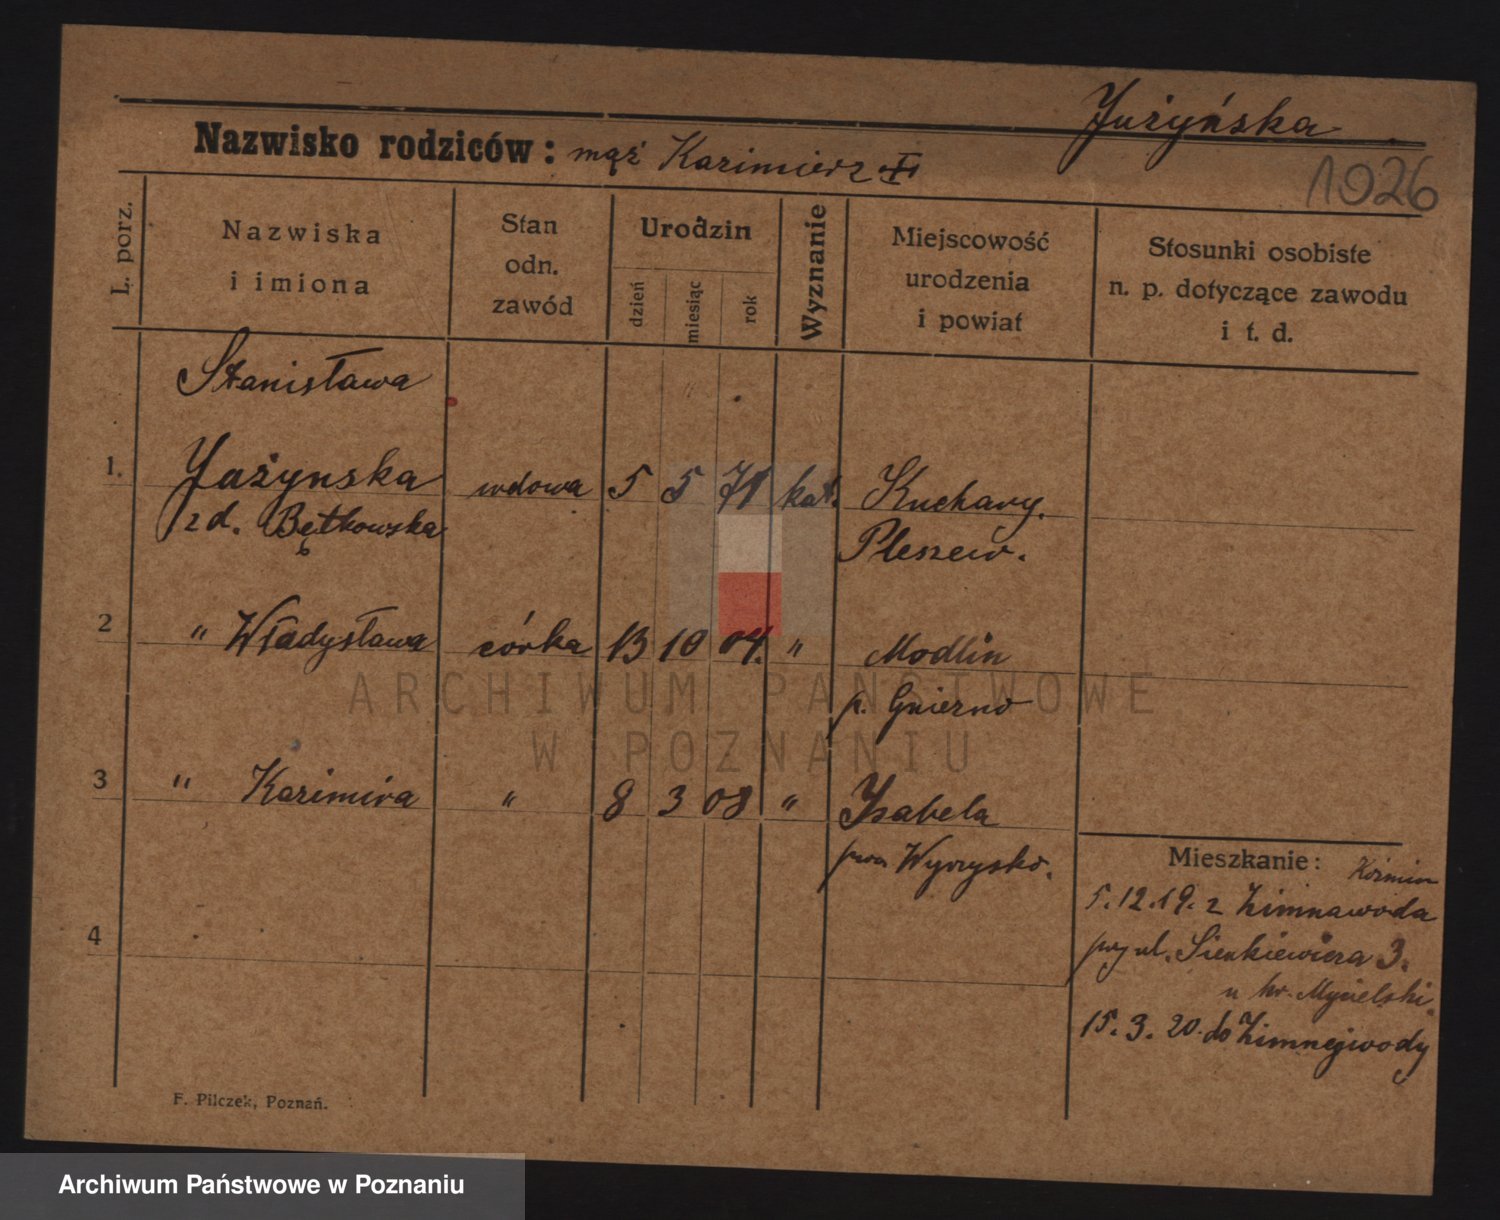 Jużyńska
Nazwisko rodziców: mąż Kazimierz
1026
L. porz.
Nazwiska
i imiona
Stan
odn.
zawód
Urodzin
dzień
miesiąc
rok
Wyznanie
Miejscowość
urodzenia
i powiat
Stosunki osobiste
n. p. dotyczące zawodu
i t. d.
Stanisława
1. Jażynska wdowa 5 5 71 kat. Kuchary.
z d. Bętkowska Pleszew.
2 " Władysława córka 13 10 04. " Modlin
p. Gniezno
3 " Kazimira " 8 3 08 " Izabela
pow Wyrzysko.
4
Mieszkanie: Koźmin
5.12.19. z Zimnawoda
przy ul. Sienkiewicza 3.
u hr. Mycielski.
15.3.20. do Zimnejwody
F. Pilczek, Poznań.
ARCHIWUM PAŃSTWOWE
W POZNANIU
Archiwum Państwowe w Poznaniu